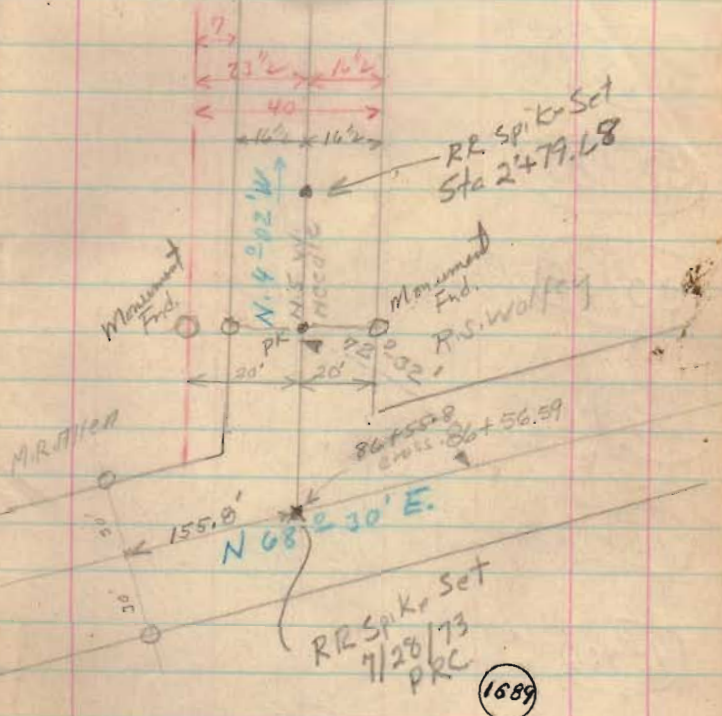 7
23½
16½
40
16½
16½
RR Spike Set
Sta 2+79.68
N. 4° 02' W
Monument
Fnd.
Monument
Fnd.
PK
72° 32'
R.S. Wolfey
20'
20'
M.R. Allen
86+55.8
cross. 86+56.59
155.8'
N 68° 30' E.
30'
30'
RR Spike Set
7/28/73
PRC
1689